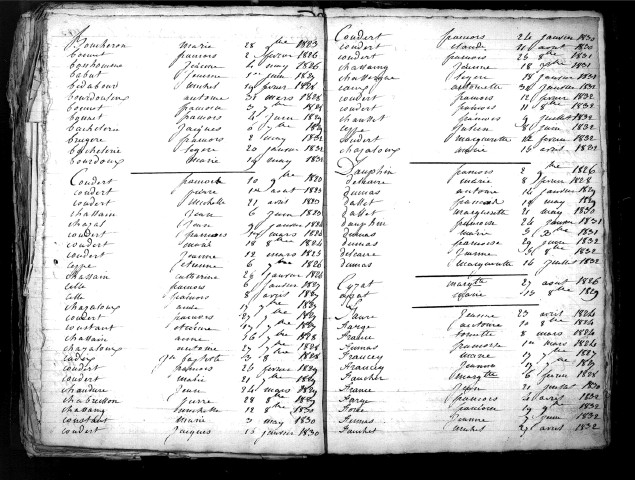 Boucheron Marie 28 9bre 1823
Bonnet francois 2 fevrier 1826
bonhomme Jeanne 4 may 1826
babut Jeanne 1er juin 1827
bidabeut Michel 14 fevrier 1828
bourdouleix antoine 31 mars 1828
bonnet francois 3 7bre 1828
bonnet francois 4 juin 1829
bachelerie Jacques 6 7bre 1829
brugere francois 2 may 1831
bachelerie Legere 20 janvier 1832
bourdoux Marie 14 may 1832
Coudert francois 10 9bre 1820
coudert pierre 1er aout 1823
coudert Michelle 21 avril 1823
chassain Jean 6 juin 1820
chazal Jean 9 janvier 1824
coudert francois mars 1824
coudert 18 8bre 1824
coudert Jeanne 12 mars 1825
ceppe etienne 6 9bre 1826
chassain catherine 28 janvier 1826
celle francois 6 janvier 1827
celle francois 8 avril 1827
chazaloux anne 7bre 1827
coudert francois 27 9bre 1827
constant 17 9bre 1827
chassain anne 26 8bre 1828
chazaloux antoine 27 7bre 1828
jn baptiste 3 8bre 1828
coudert francois 26 fevrier 1829
coudert marie 21 9bre 1829
chaudure Jean 24 mars 1829
chabrillon pierre 28 8bre 1829
chassang michelle 12 8bre 1830
constant Marie 3 may 1830
coudert Jacques 15 janvier 1830
Coudert francois 24 janvier 1830
coudert claude 11 aout 1830
coudert francois 26 8bre 1831
chassang Jeanne 18 Xbre 1831
chassaigne Legere 18 janvier 1831
antoinette 30 janvier 1832
coudert francois 12 fevrier 1832
coudert francois 11 8bre 1832
chaudet francois 4 juillet 1832
ceppe Julien 8 juin 1832
coudert marguerite 14 fevrier 1832
chazaloux marie 15 avril 1831
Dauphin francois 2 9bre 1826
delcaire marie 8 fevrier 1828
dumas antoine 16 janvier 1829
dallet francois 18 may 1829
dallet marguerite 21 may 1830
dauphin francoise 26 janvier 1831
dumas marie 3 Xbre 1831
dumas francoise 29 janvier 1832
delcaire Jeanne 31 8bre 1832
dumas marguerite 16 juillet 1832
Eyzat margte 27 aout 1826
eyzat Marie 15 8bre 1829
Faure Jeanne 23 avril 1824
Farge antoine 10 8bre 1824
France 8 mars 1824
Fumas francoise 1er mars 1824
Francey marie 17 9bre 1827
Francey Jeanne 17 9bre 1829
Faucher margte 6 fevrier 1828
France Jean 21 juillet 1830
Farge francois avril 1832
Farge francoise 19 9bre 1832
Fumas Jeanne 7 juin 1832
Faucher Michel 29 avril 1832